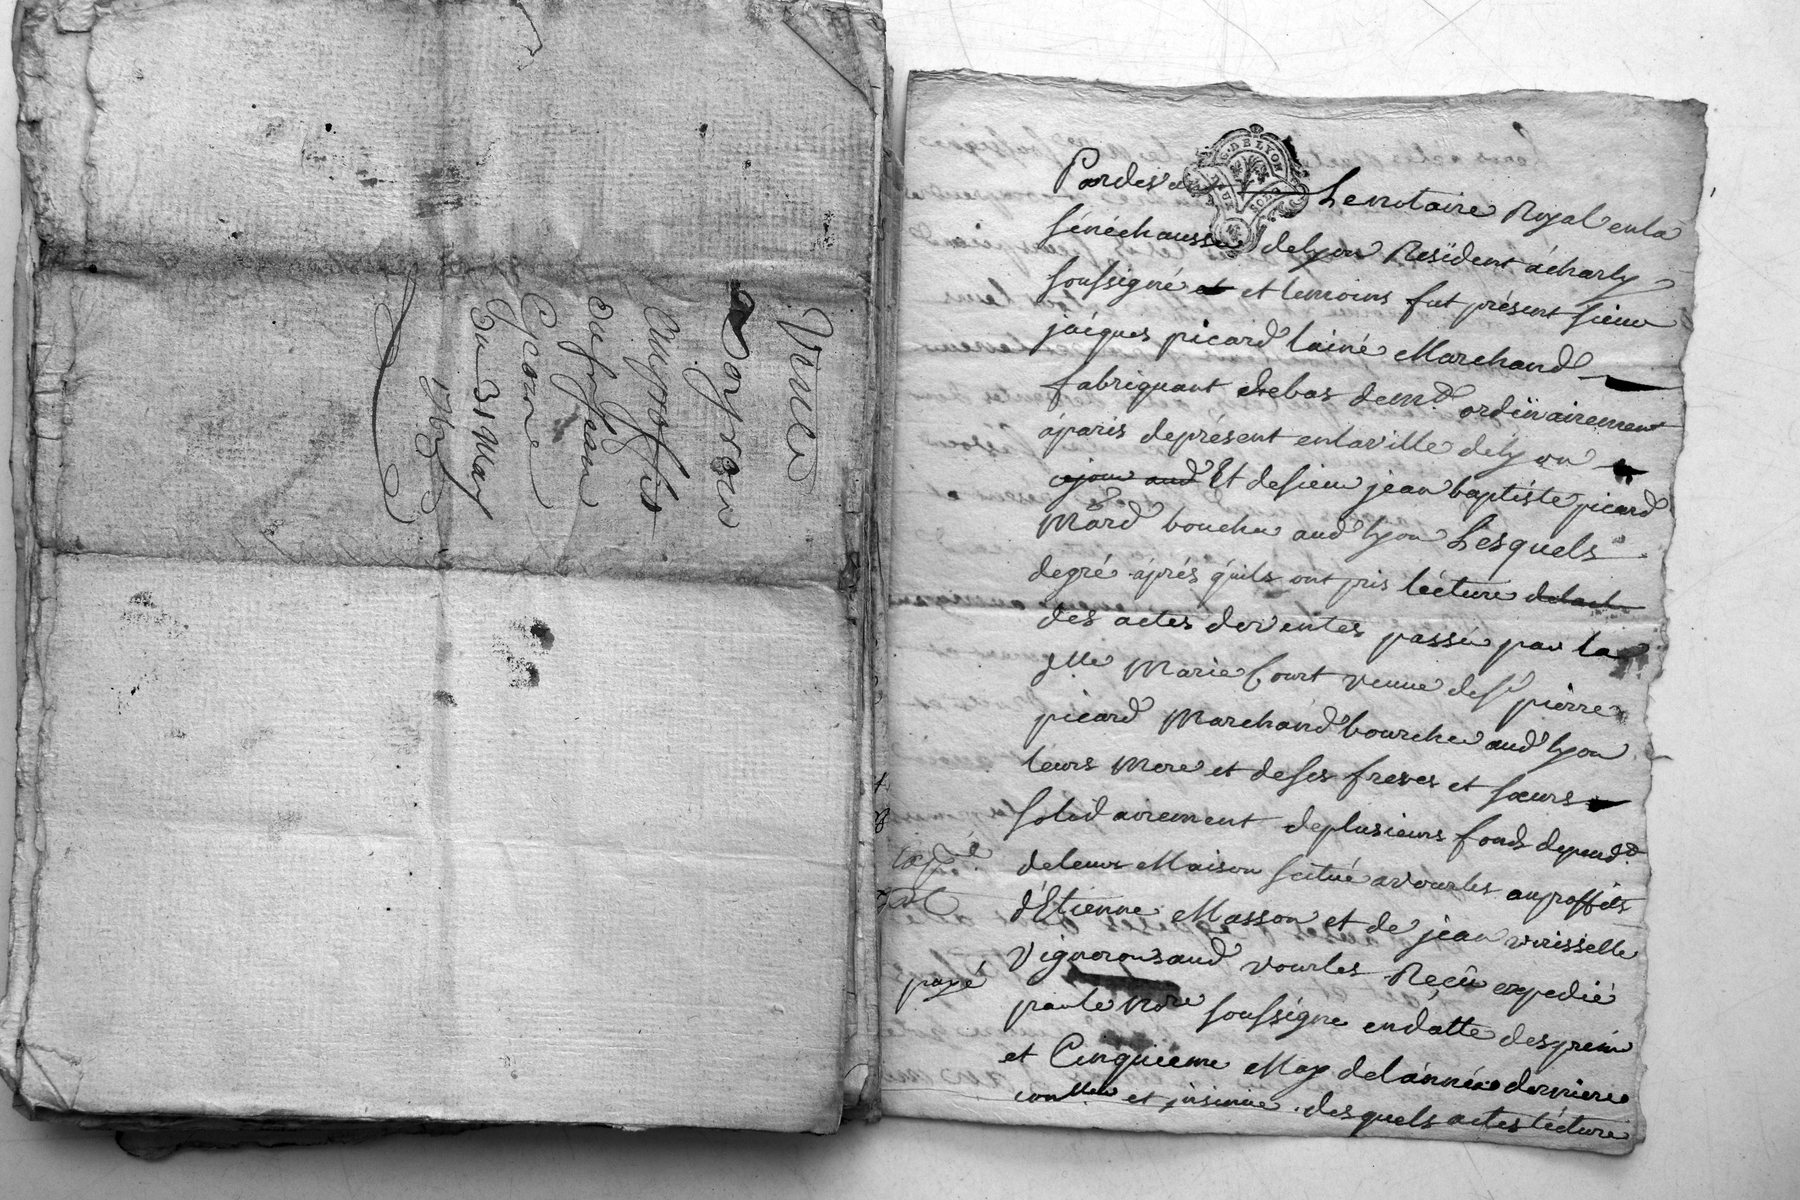 Vente
au proffit
de jean
Du 31 May
G. DE LYON
Pardeva Le notaire Royal en la
sénéchaussée de lyon Résident à charly
soussigné et et temoins fut présent sieur
jacques picard lainé Marchand
fabriquant de bas de md. ordinairement
à paris de présent en la ville de lyon
Et de sieur jean baptiste picard
Mard boucher aud lyon Lesquels
de gré après quils ont pris lécture
des actes de ventes passés par la
dlle Marie Court veuve de sr pierre
picard Marchand boucher aud lyon
leurs Mere et de ses freres et sœurs
solidairement de plusieurs fonds depend.
de leur Maison scitué a vourles au proffits
d'Etienne Masson et de jean
Vignerons aud vourles Reçû expedié
par le nore soussigné en datte des prem
et Cinquieme May de l'année derniere
conllé et insinué desquels actes lécture
payé